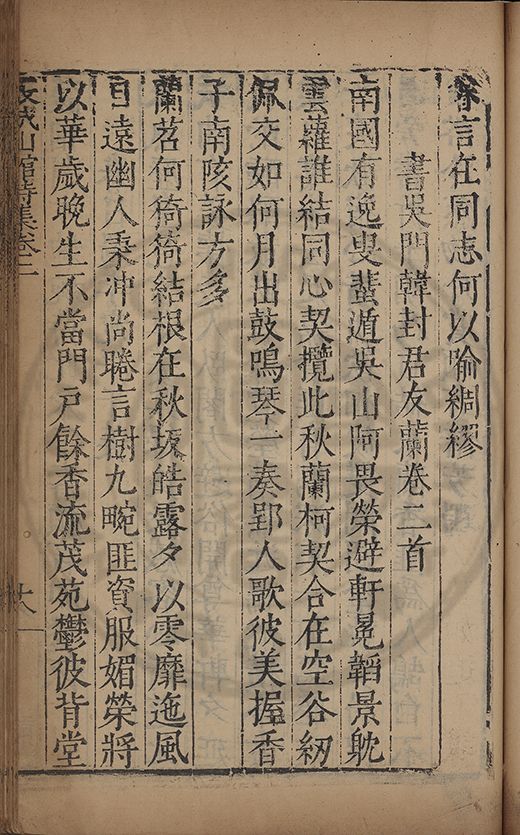 睠言在同志何以喻綢繆
書吳門韓封君友蘭卷二首
南國有逸叟蜚遁吳山阿畏榮避軒冕韜景躭
雲蘿誰結同心契攬此秋蘭柯契合在空谷紉
佩交如何月出鼓鳴琴一奏郢人歌彼美握香
子南陔詠方多
蘭茗何猗猗結根在秋坂皓露夕以零靡迤風
日遠幽人秉冲尚睠言樹九畹匪資服媚榮將
以華歲晚生不當門戶餘香流茂苑鬱彼背堂
山館詩集卷二